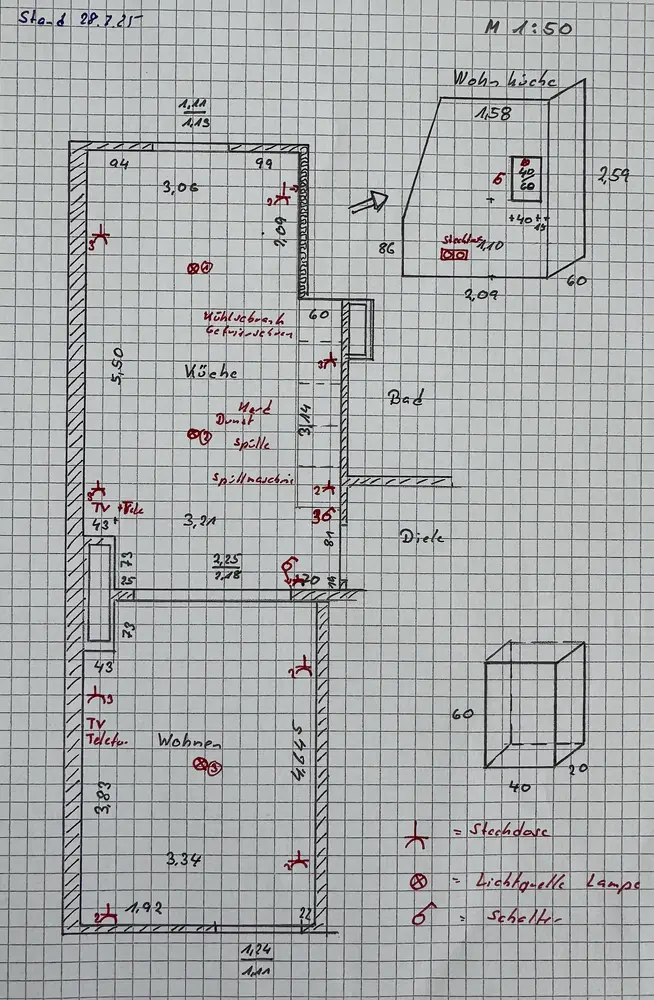 Stand 28.7.25
M 1:50
Wohnküche
1,58
40
60
6
2,59
+40++
15
86
Steckdose
1,10
2,09
60
1,11
1,13
94
99
3,06
2
2,09
3
1
Kühlschrank
Gefrierschrank
60
3
5,50
Küche
Bad
Herd
Dunst
3,14
2
Spülle
Spüllmaschine
2
3
TV + Tele
43
3,21
36
81
Diele
73
2,25
2,18
25
20
19
73
43
2
3
TV
Telefon
Wohnen
3
4,645
3,83
3,34
2
2
1,92
22
1,24
1,11
60
40
20
= Steckdose
= Lichtquelle Lampe
= Schalter